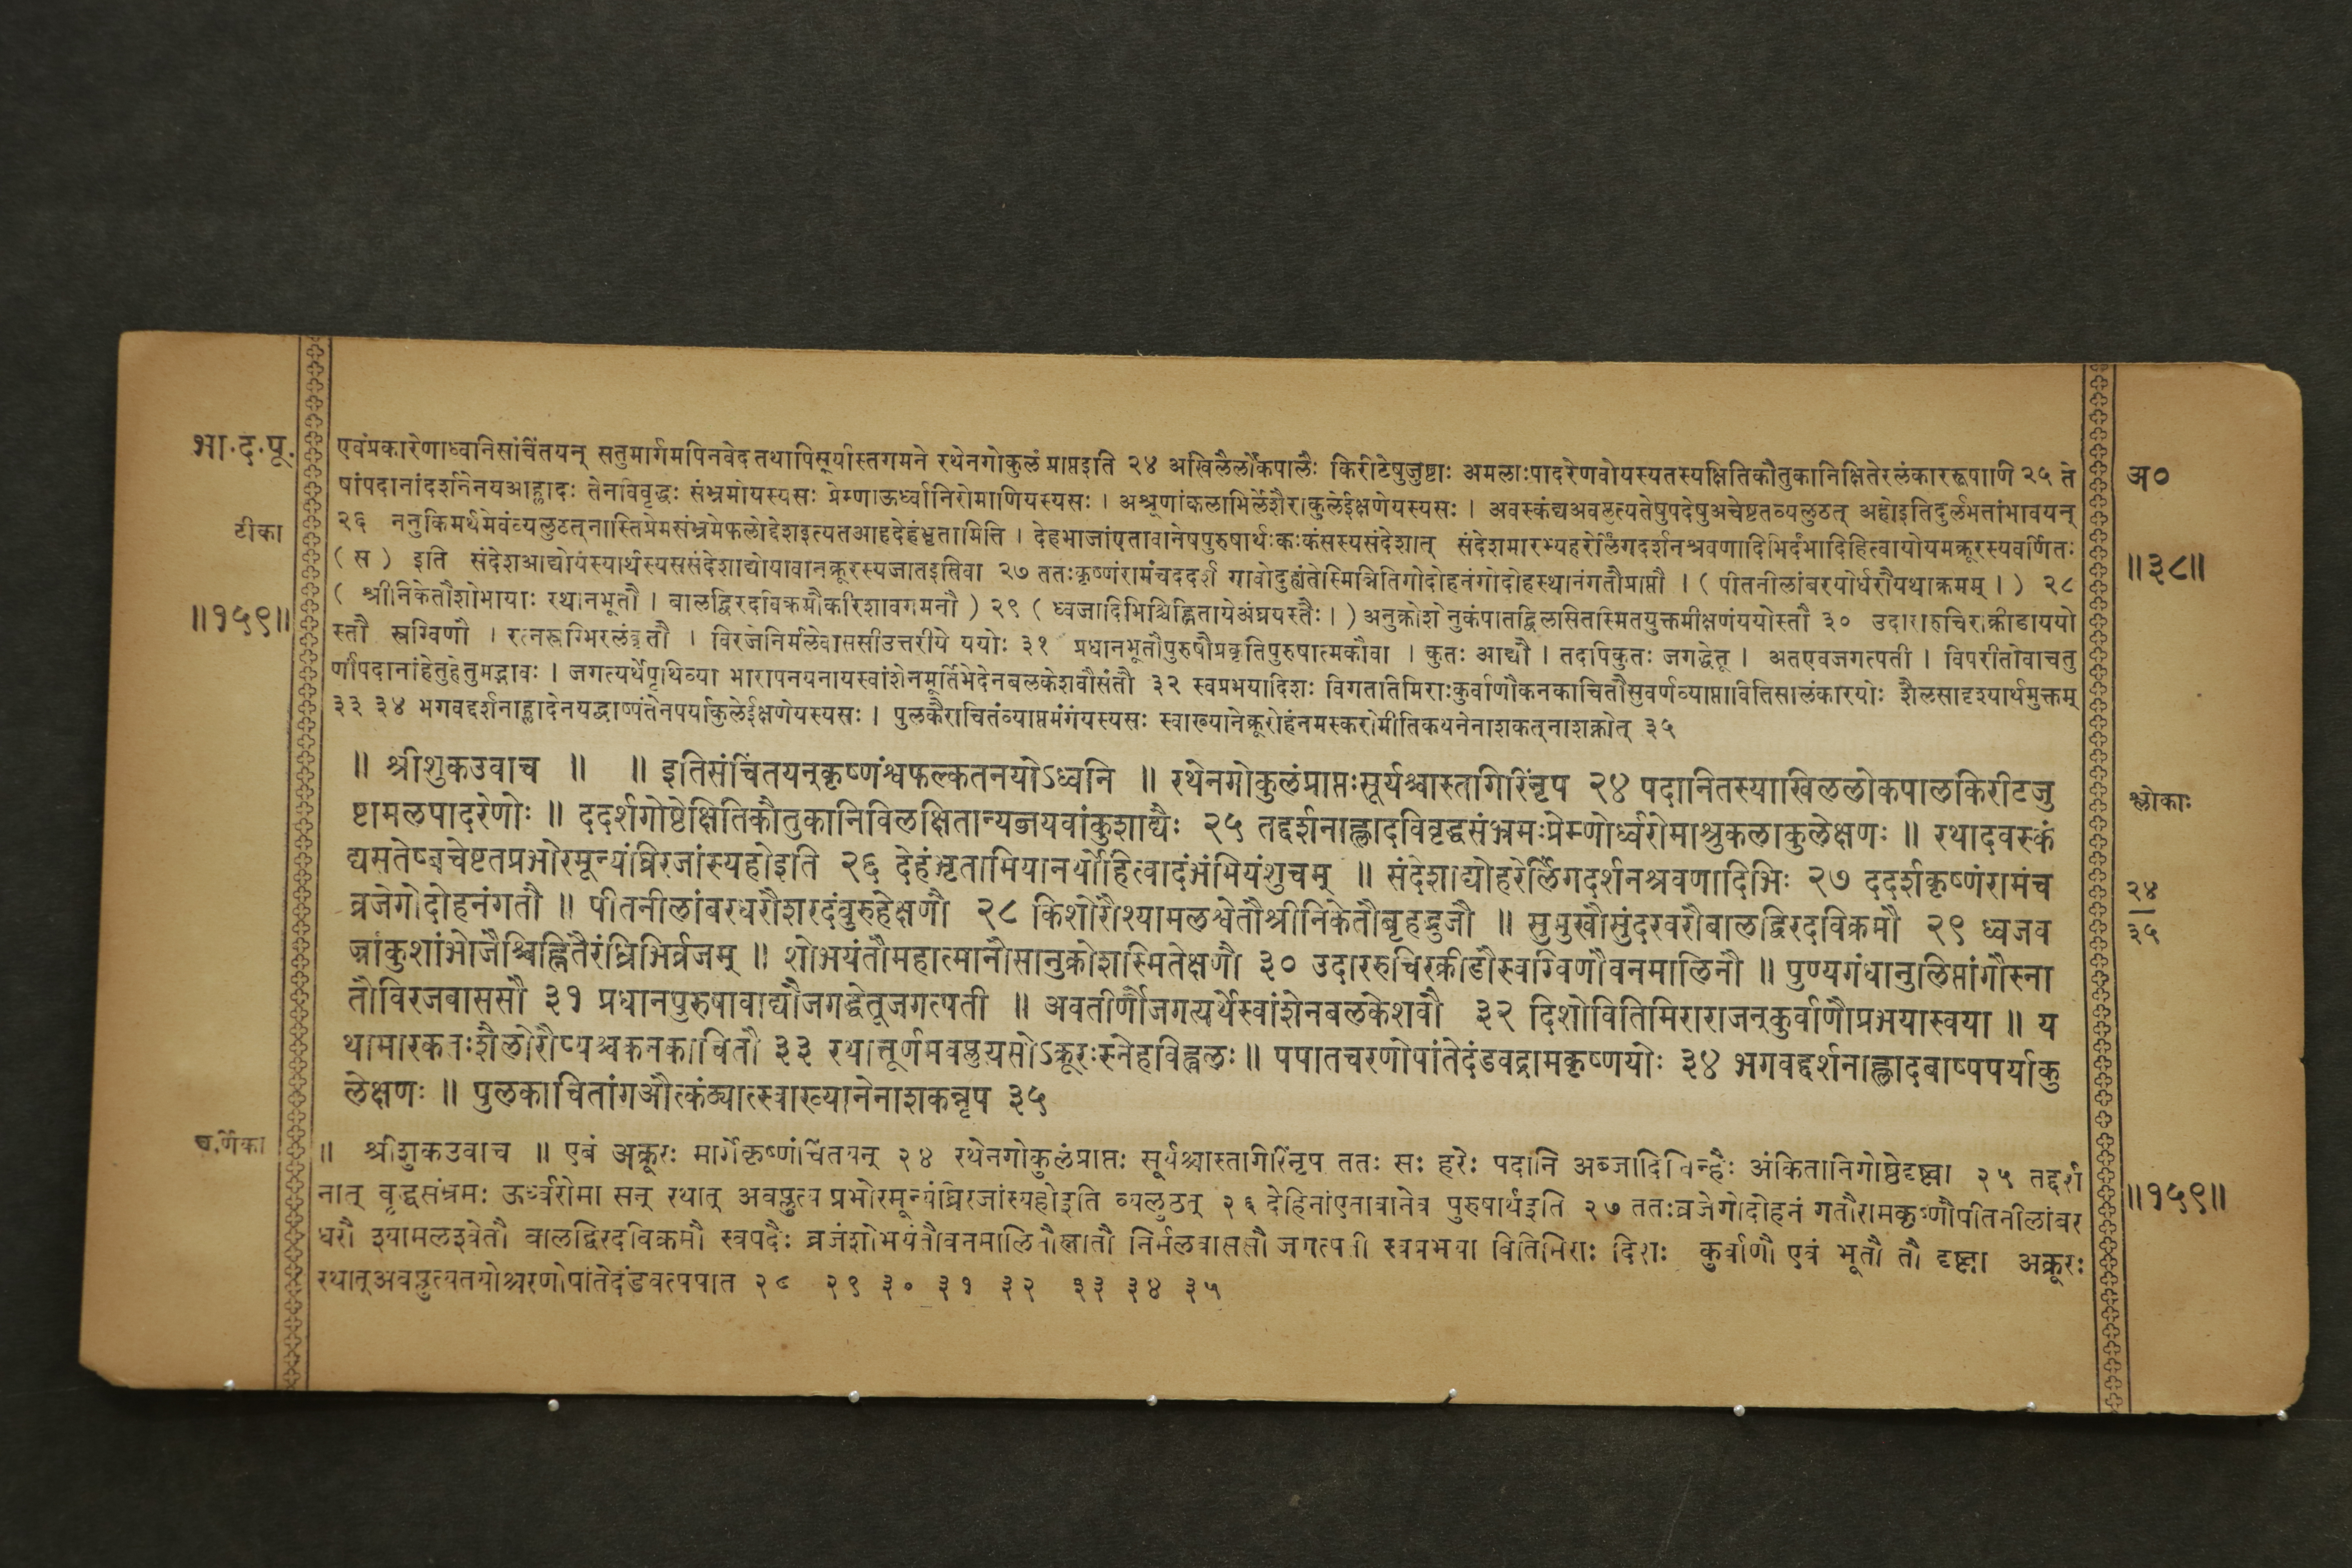 भा.द.पू.
टीका
॥१५९॥
एवंप्रकारेणाध्वनिसंचिंतयन् सतुमार्गमपिनवेद तथापिसूर्यास्तगमने रथेनगोकुलं प्राप्तइति २४ अखिलैर्लोकपालैः किरीटेषुजुष्टाः अमलाःपादरेणवोयस्यतस्यक्षितिकौतुकानिक्षितेरलंकाररूपाणि २५ ते
षांपदानांदर्शनेनयआह्लादः तेनविवृद्धः संभ्रमोयस्यसः प्रेम्णाऊर्ध्वानिरोमाणियस्यसः । अश्रूणांकलाभिर्लेशैराकुलेईक्षणेयस्यसः । अवस्कंद्यअवप्लुत्यतेषुपदेषुअचेष्टतव्यलुठत् अहोइतिदुर्लभतांभावयन्
२६ ननुकिमर्थमेवंव्यलुटत्‌नास्तिप्रेमसंभ्रमेफलोद्देशइत्यतआहदेहंभृतामिति । देहभाजांएतावानेषपुरुषार्थःकःकंसस्यसंदेशात् संदेशमारभ्यहरेर्लिंगदर्शनश्रवणादिभिर्दंभादिहित्वायोयमक्रूरस्यवर्णितः
( स ) इति संदेशआद्योयस्यार्थस्यससंदेशाद्योयावानक्रूरस्यजातइतिवा २७ ततःकृष्णंरामंचददर्श गावोदुह्यंतेस्मिन्नितिगोदोहनंगोदोहस्थानंगतौप्राप्तौ । ( पीतनीलांबरयोर्धरौयथाक्रमम् । ) २८
( श्रीनिकेतौशोभायाः स्थानभूतौ । बालद्विरदविक्रमौकरिशावगमनौ ) २९ ( ध्वजादिभिश्चिह्नितायेअंघ्रयस्तैः । ) अनुक्रोशोनुकंपातद्विलसितस्मितयुक्तमीक्षणंययोस्तौ ३० उदारारुचिराक्रीडाययो
स्तौ स्रग्विणौ । रत्नस्रग्भिरलंकृतौ । विरजेनिर्मलेवाससीउत्तरीये ययोः ३१ प्रधानभूतौपुरुषौप्रकृतिपुरुषात्मकौवा । कुतः आद्यौ । तदपिकुतः जगद्धेतू । अतएवजगत्पती । विपरीतोवाचतु
र्णांपदानांहेतुहेतुमद्भावः । जगत्यर्थेपृथिव्या भारापनयनायस्वांशेनमूर्तिभेदेनबलकेशवौसंतौ ३२ स्वप्रभयादिशः विगततिमिराःकुर्वाणौकनकाचितौसुवर्णव्याप्तावितिसालंकारयोः शैलसादृश्यार्थमुक्तम्
३३ ३४ भगवद्दर्शनाह्लादेनयद्बाष्पंतेनपर्याकुलेईक्षणेयस्यसः । पुलकैराचितंव्याप्तमंगंयस्यसः स्वाख्यानेक्रूरोहंनमस्करोमीतिकथनेनाशकत्‌नाशक्नोत् ३५
॥ श्रीशुकउवाच ॥ ॥ इतिसंचिंतयन्‌कृष्णंश्वफल्कतनयोऽध्वनि ॥ रथेनगोकुलंप्राप्तःसूर्यश्चास्तगिरिंनृप २४ पदानितस्याखिललोकपालकिरीटजु
ष्टामलपादरेणोः ॥ ददर्शगोष्ठेक्षितिकौतुकानिविलक्षितान्यब्जयवांकुशाद्यैः २५ तद्दर्शनाह्लादविवृद्धसंभ्रमःप्रेम्णोर्ध्वरोमाश्रुकलाकुलेक्षणः ॥ रथादवस्कं
द्यसतेष्वचेष्टतप्रभोरमून्यंघ्रिरजांस्यहोइति २६ देहंभृतामियानर्थोहित्वादंभंभियंशुचम् ॥ संदेशाद्योहरेर्लिंगदर्शनश्रवणादिभिः २७ ददर्शकृष्णंरामंच
व्रजेगोदोहनंगतौ ॥ पीतनीलांबरधरौशरदंबुरुहेक्षणौ २८ किशोरौश्यामलश्वेतौश्रीनिकेतौबृहद्भुजौ ॥ सुमुखौसुंदरवरौबालद्विरदविक्रमौ २९ ध्वजव
ज्रांकुशांभोजैश्चिह्नितैरंघ्रिभिर्व्रजम् ॥ शोभयंतौमहात्मानौसानुक्रोशस्मितेक्षणौ ३० उदाररुचिरक्रीडौस्रग्विणौवनमालिनौ ॥ पुण्यगंधानुलिप्तांगौस्ना
तौविरजवाससौ ३१ प्रधानपुरुषावाद्यौजगद्धेतूजगत्पती ॥ अवतीर्णौजगत्यर्थेस्वांशेनबलकेशवौ ३२ दिशोवितिमिराराजन्‌कुर्वाणौप्रभयास्वया ॥ य
थामारकतःशैलोरौप्यश्चकनकाचितौ ३३ रथात्तूर्णमवप्लुत्यसोऽक्रूरःस्नेहविह्वलः ॥ पपातचरणोपांतेदंडवद्रामकृष्णयोः ३४ भगवद्दर्शनाह्लादबाष्पपर्याकु
लेक्षणः ॥ पुलकाचितांगऔत्कंठ्यात्स्वाख्यानेनाशकन्नृप ३५
॥ श्रीशुकउवाच ॥ एवं अक्रूरः मार्गेकृष्णंचिंतयन् २४ रथेनगोकुलंप्राप्तः सूर्यश्चास्तगिरिंनृप ततः सः हरेः पदानि अब्जादिचिन्हैः अंकितानिगोष्ठेदृष्ट्वा २५ तद्दर्श
नात् वृद्धसंभ्रमः ऊर्ध्वरोमा सन् रथात् अवप्लुत्य प्रभोरमून्यंघ्रिरजांस्यहोइति व्यलुठत् २६ देहिनांएतावानेव पुरुषार्थइति २७ ततःव्रजेगोदोहनं गतौरामकृष्णौपीतनीलांबर
धरौ श्यामलश्वेतौ बालद्विरदविक्रमौ स्वपदैः व्रजंशोभयंतौवनमालिनौस्नातौ निर्मलवाससौ जगत्पती स्वप्रभया वितिमिराः दिशः कुर्वाणौ एवं भूतौ तौ दृष्ट्वा अक्रूरः
रथात्‌अवप्लुत्यतयोश्चरणोपांतेदंडवत्पपात २८ २९ ३० ३१ ३२ ३३ ३४ ३५
अ०
॥३८॥
श्लोकाः
२४
३५
॥१५९॥